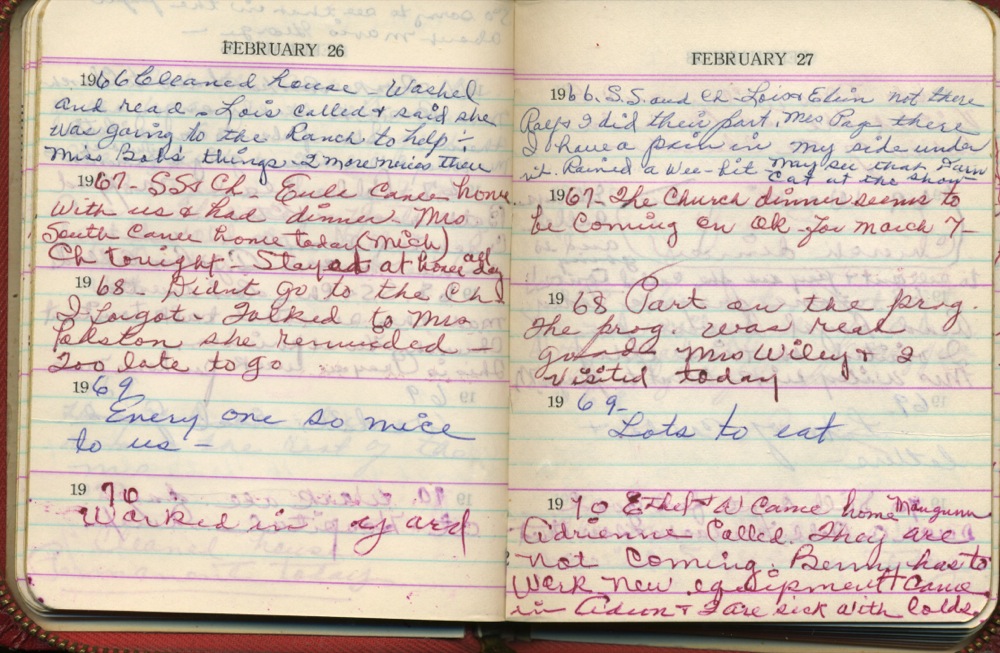 FEBRUARY 26
1966 Cleaned house - Washed
and read - Lois called & said she
was going to the Ranch to help
Miss Bobs' things - 2 more movies then
1967 - SS & Ch - Eula Came home
with us & had dinner - Mrs
South Came home today (Mich)
Ch tonight - Stayed at home all day
1968 - Didnt go to the Ch
I forgot - Talked to Mrs
she reminded -
Too late to go
1969
Every one so nice
to us -
1970
Worked in yard
FEBRUARY 27
1966. S.S. and Ch - Lois & Elvin not there
Ralf & I did their part. Mrs Page there
I have a pain in my side under
Rained a Wee - bit May see that Darn
Cat at the show
1967 - The Church dinner seems to
be Coming on OK for march 7 -
1968 Part on the prog.
The prog. was real
good - Mrs Wiley & I
visited today
1969 -
Lots to eat
1970 Ethel & W Came home
Adrienne Called. They are
not Coming. Benny has to
Work New eqipment Came
in - & I are sick with Colds.